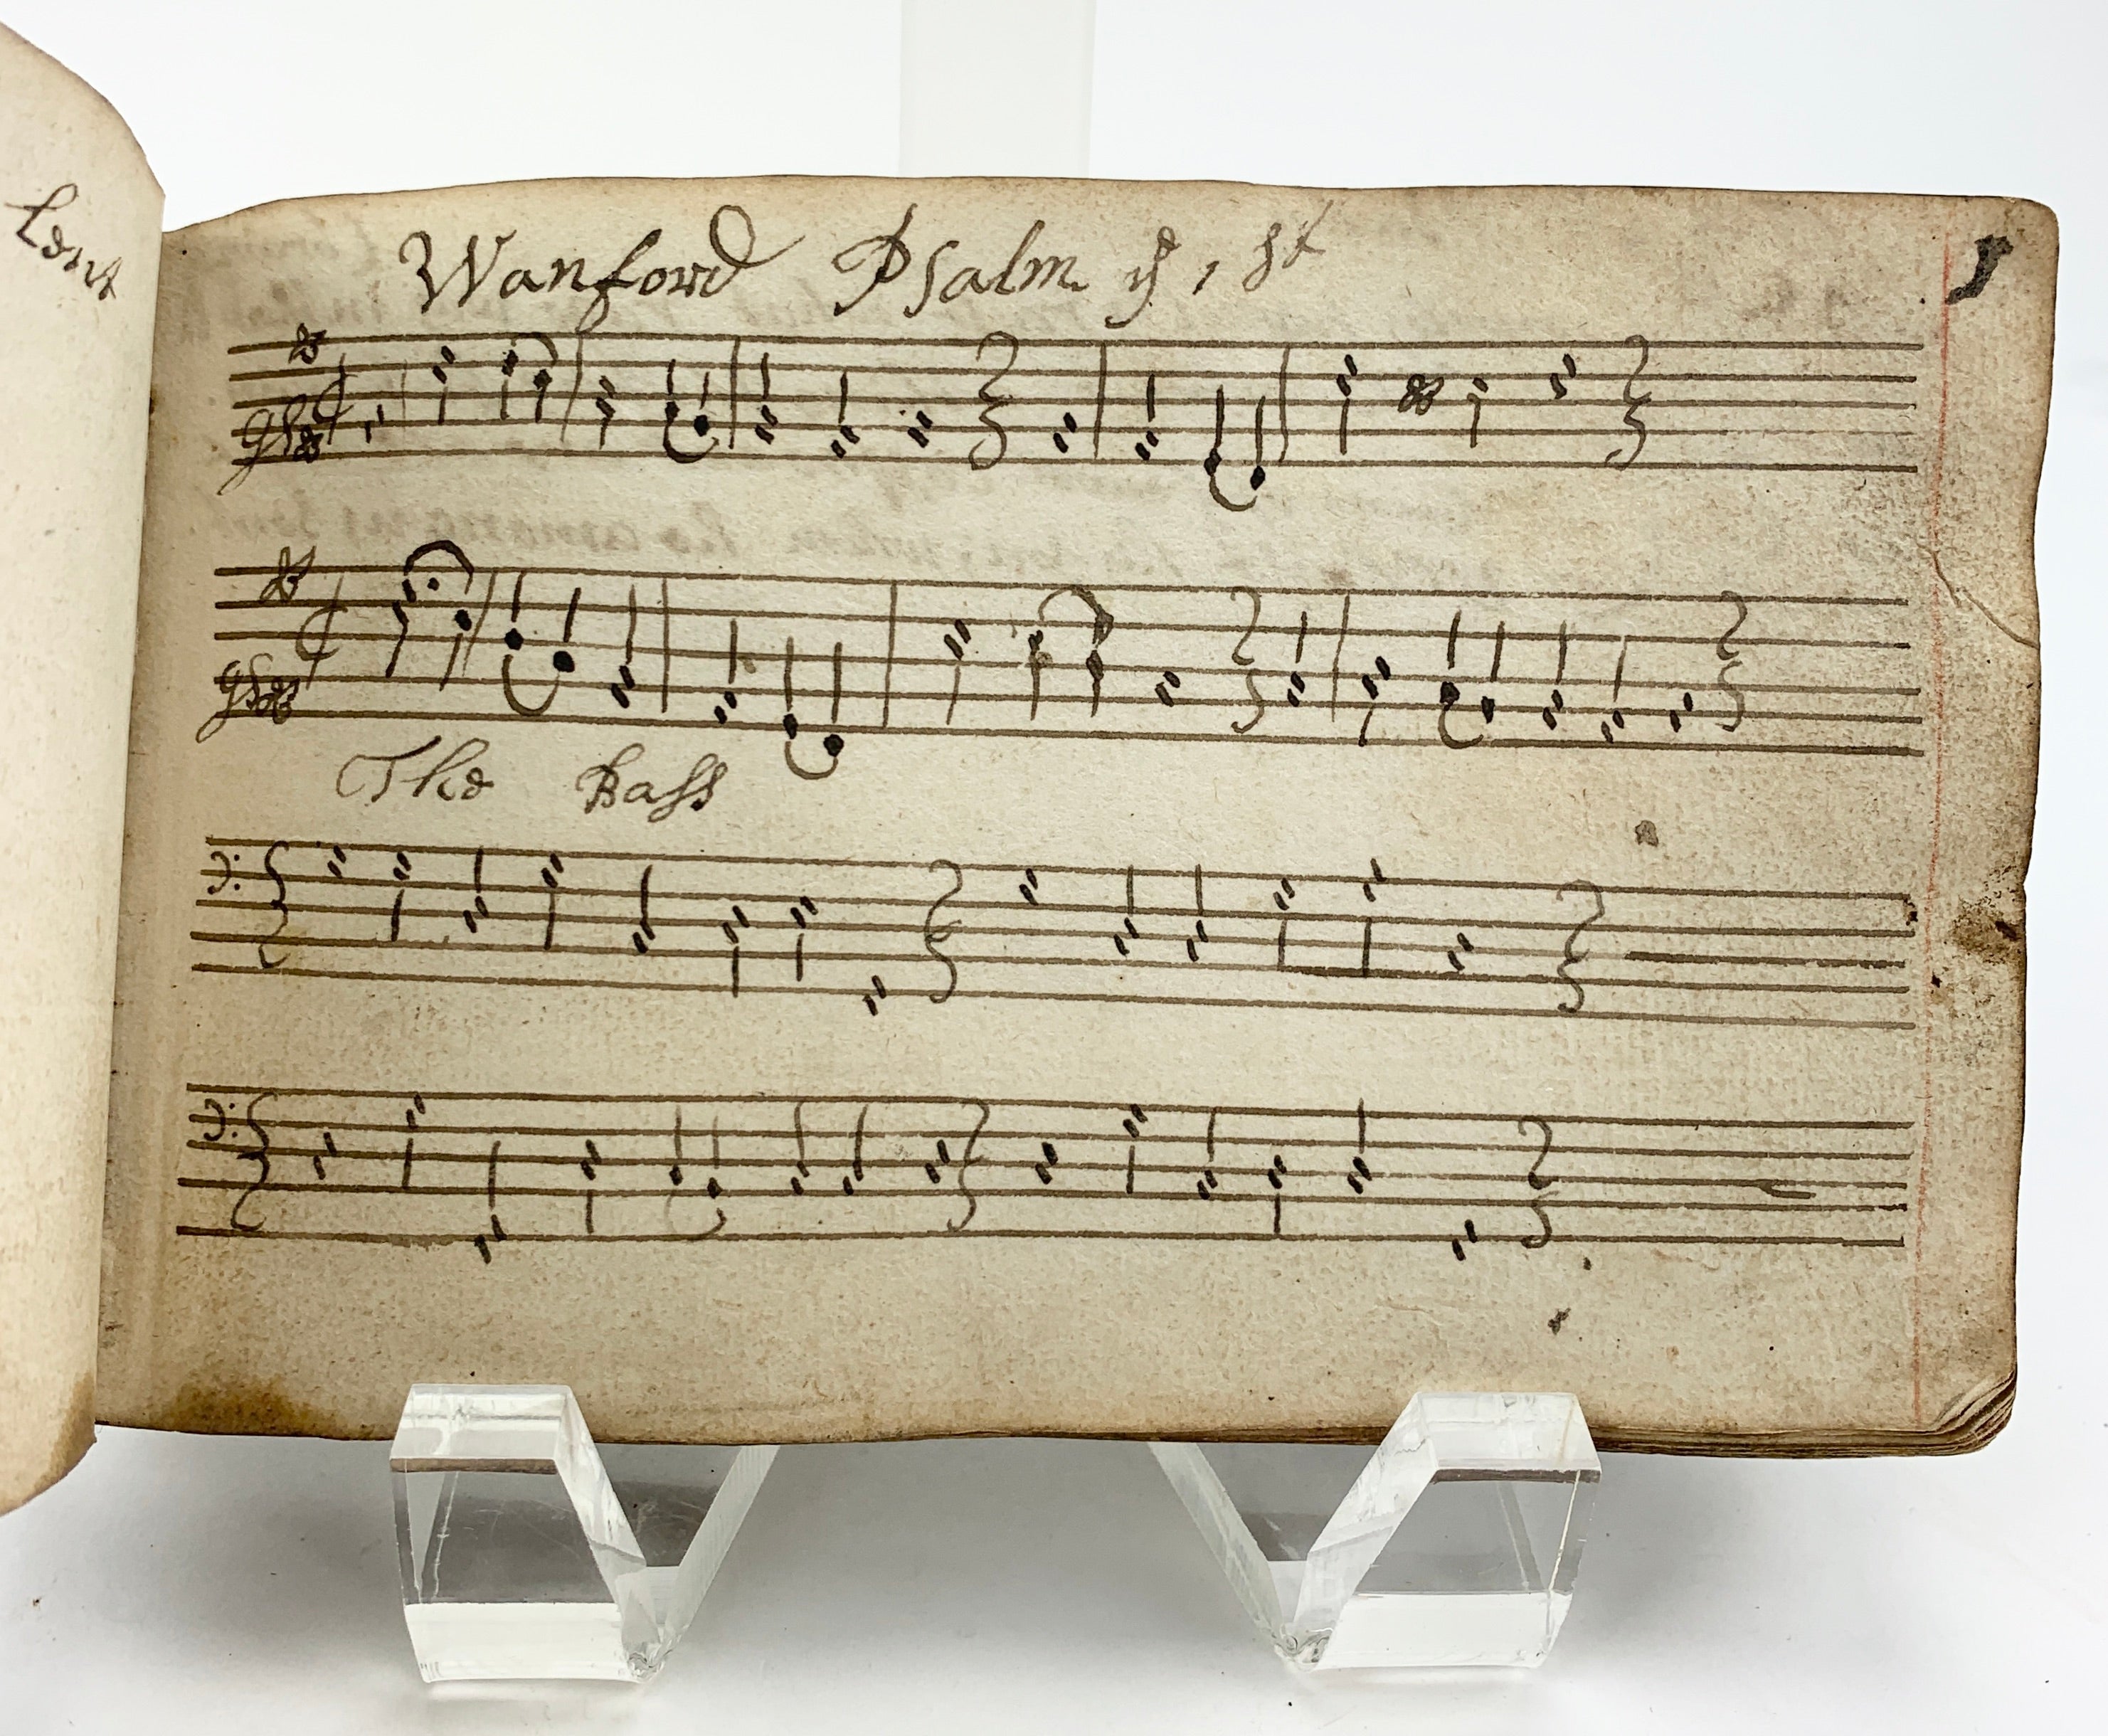 Lent
Wanford Psalm yᵉ 1 st
1
The Bass